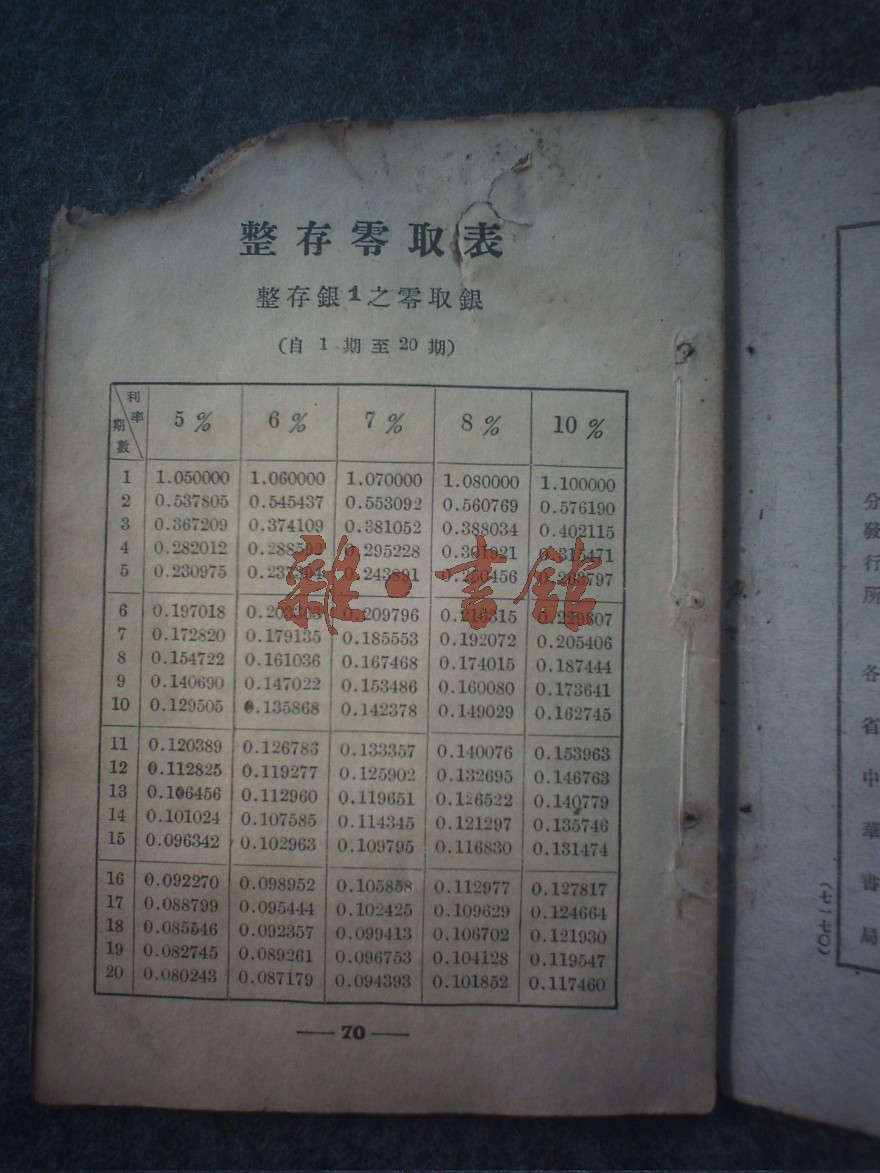 整存零取表
整存銀1之零取銀
(自 1 期至 20 期)
利率 期數 5% 6% 7% 8% 10%
1 1.050000 1.060000 1.070000 1.080000 1.100000
2 0.537805 0.545437 0.553092 0.560769 0.576190
3 0.367209 0.374109 0.381052 0.388034 0.402115
4 0.282012 0.288592 0.295228 0.301921 0.315471
5 0.230975 0.237394 0.243891 0.250456 0.263797
6 0.197018 0.203363 0.209796 0.216315 0.229607
7 0.172820 0.179135 0.185553 0.192072 0.205406
8 0.154722 0.161036 0.167468 0.174015 0.187444
9 0.140690 0.147022 0.153486 0.160080 0.173641
10 0.129505 0.135868 0.142378 0.149029 0.162745
11 0.120389 0.126786 0.133357 0.140076 0.153963
12 0.112825 0.119277 0.125902 0.132695 0.146763
13 0.106456 0.112960 0.119651 0.126522 0.140779
14 0.101024 0.107585 0.114345 0.121297 0.135746
15 0.096342 0.102963 0.109795 0.116830 0.131474
16 0.092270 0.098952 0.105858 0.112977 0.127817
17 0.088799 0.095444 0.102425 0.109629 0.124664
18 0.085546 0.092357 0.099413 0.106702 0.121930
19 0.082745 0.089261 0.096753 0.104128 0.119547
20 0.080243 0.087179 0.094393 0.101852 0.117460
70
雜·書館
分發行所 各省中華書局
(七一七〇)